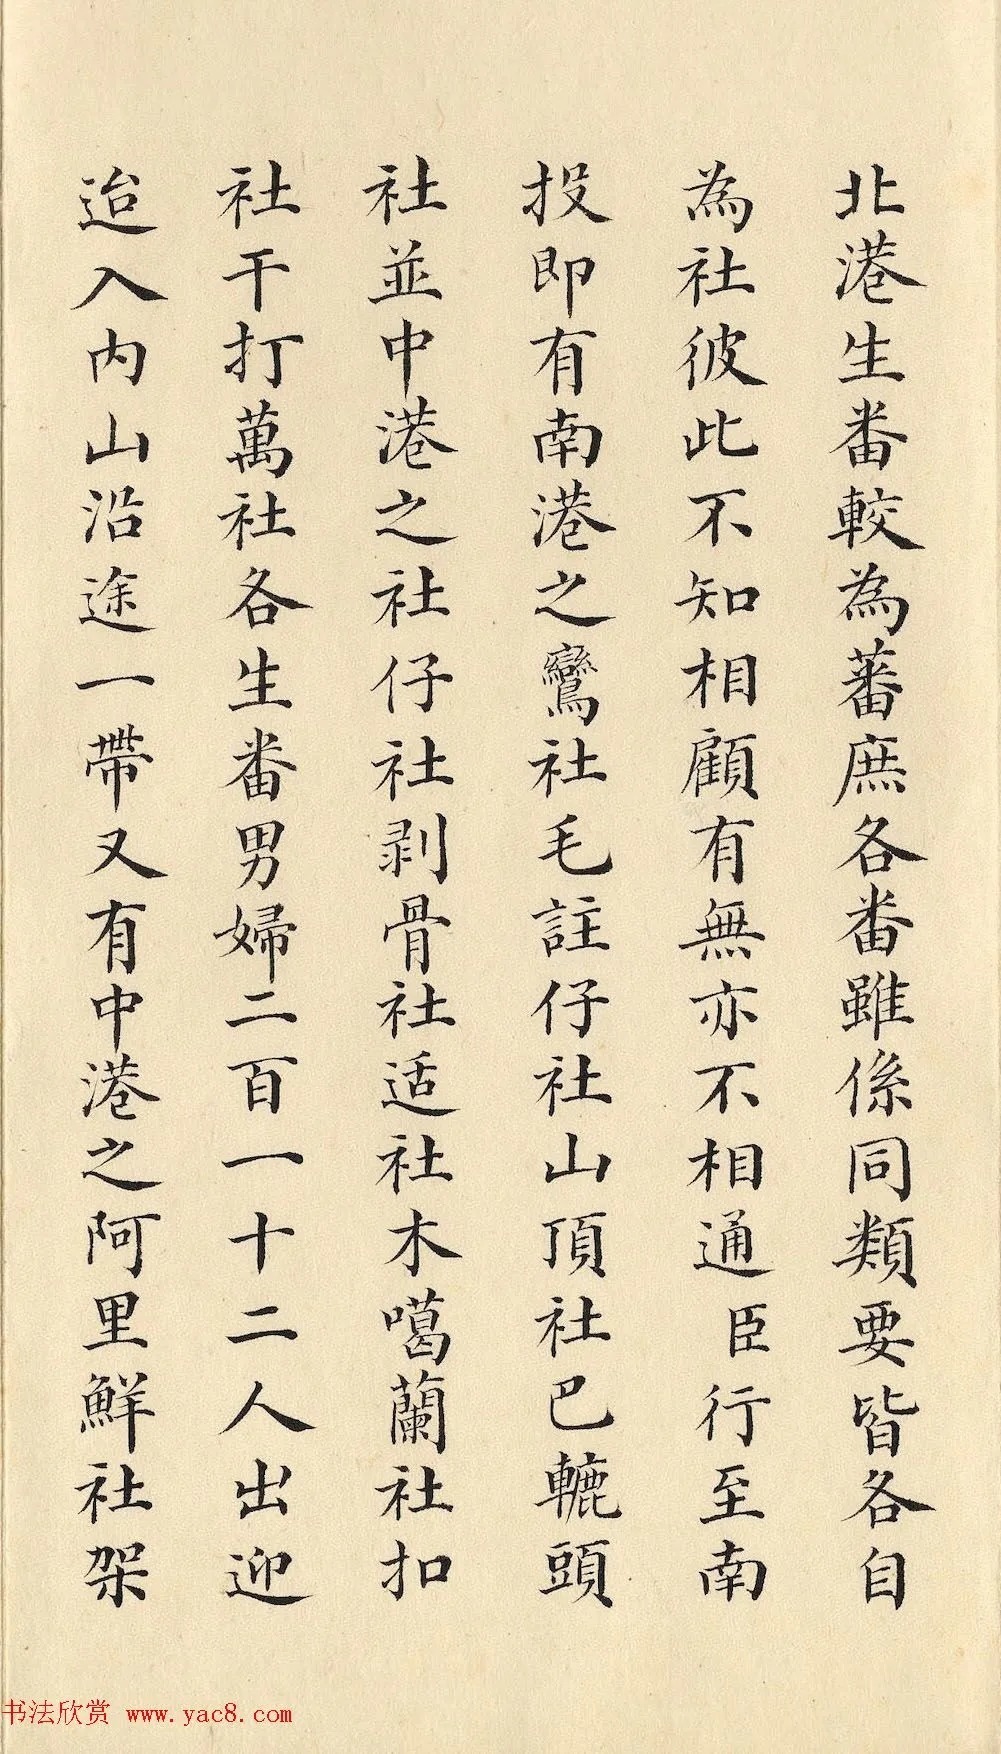 北港生番較為蕃庶各番雖係同類要皆各自
為社彼此不知相顧有無亦不相通臣行至南
投即有南港之鸞社毛註仔社山頂社巴轆頭
社並中港之社仔社剥骨社适社木噶蘭社扣
社干打萬社各生番男婦二百一十二人出迎
迨入内山沿途一帶又有中港之阿里鮮社架
书法欣赏 www.yac8.com